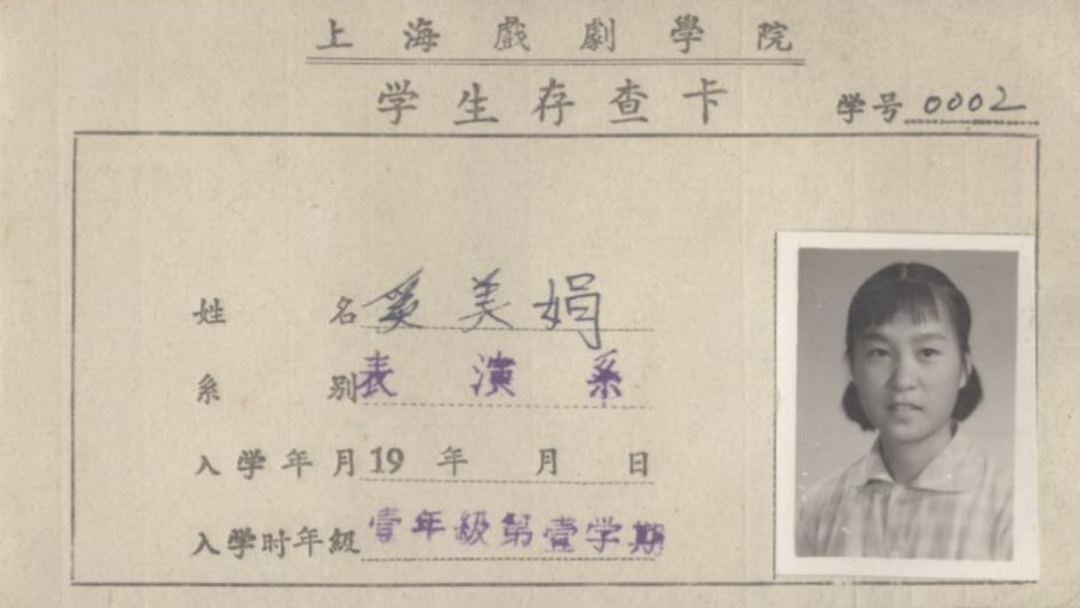 上海戲劇學院
学生存查卡
学号 0002
姓名 奚美娟
系别 表演系
入学年月 19 年 月 日
入学时年級 壹年級第壹学期